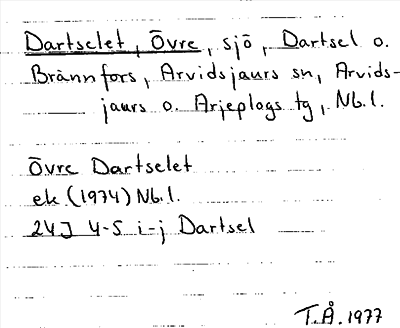 Dartselet, Övre, sjö, Dartsel o.
Brännfors, Arvidsjaurs sn, Arvids-
jaurs o. Arjeplogs tg, Nb.l.
Övre Dartselet
ek (1974) Nb.l.
24J 4-5 i-j Dartsel
T.Å. 1977